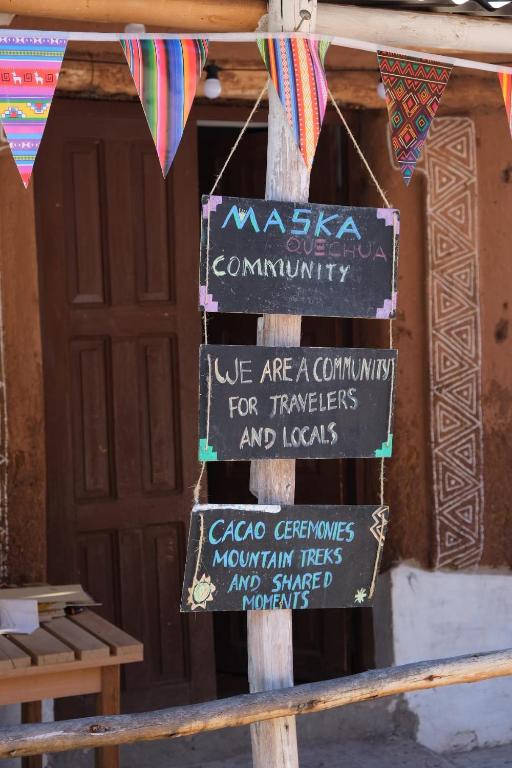 MASKA
QUECHUA
COMMUNITY
WE ARE A COMMUNITY
FOR TRAVELERS
AND LOCALS
CACAO CEREMONIES
MOUNTAIN TREKS
AND SHARED
MOMENTS